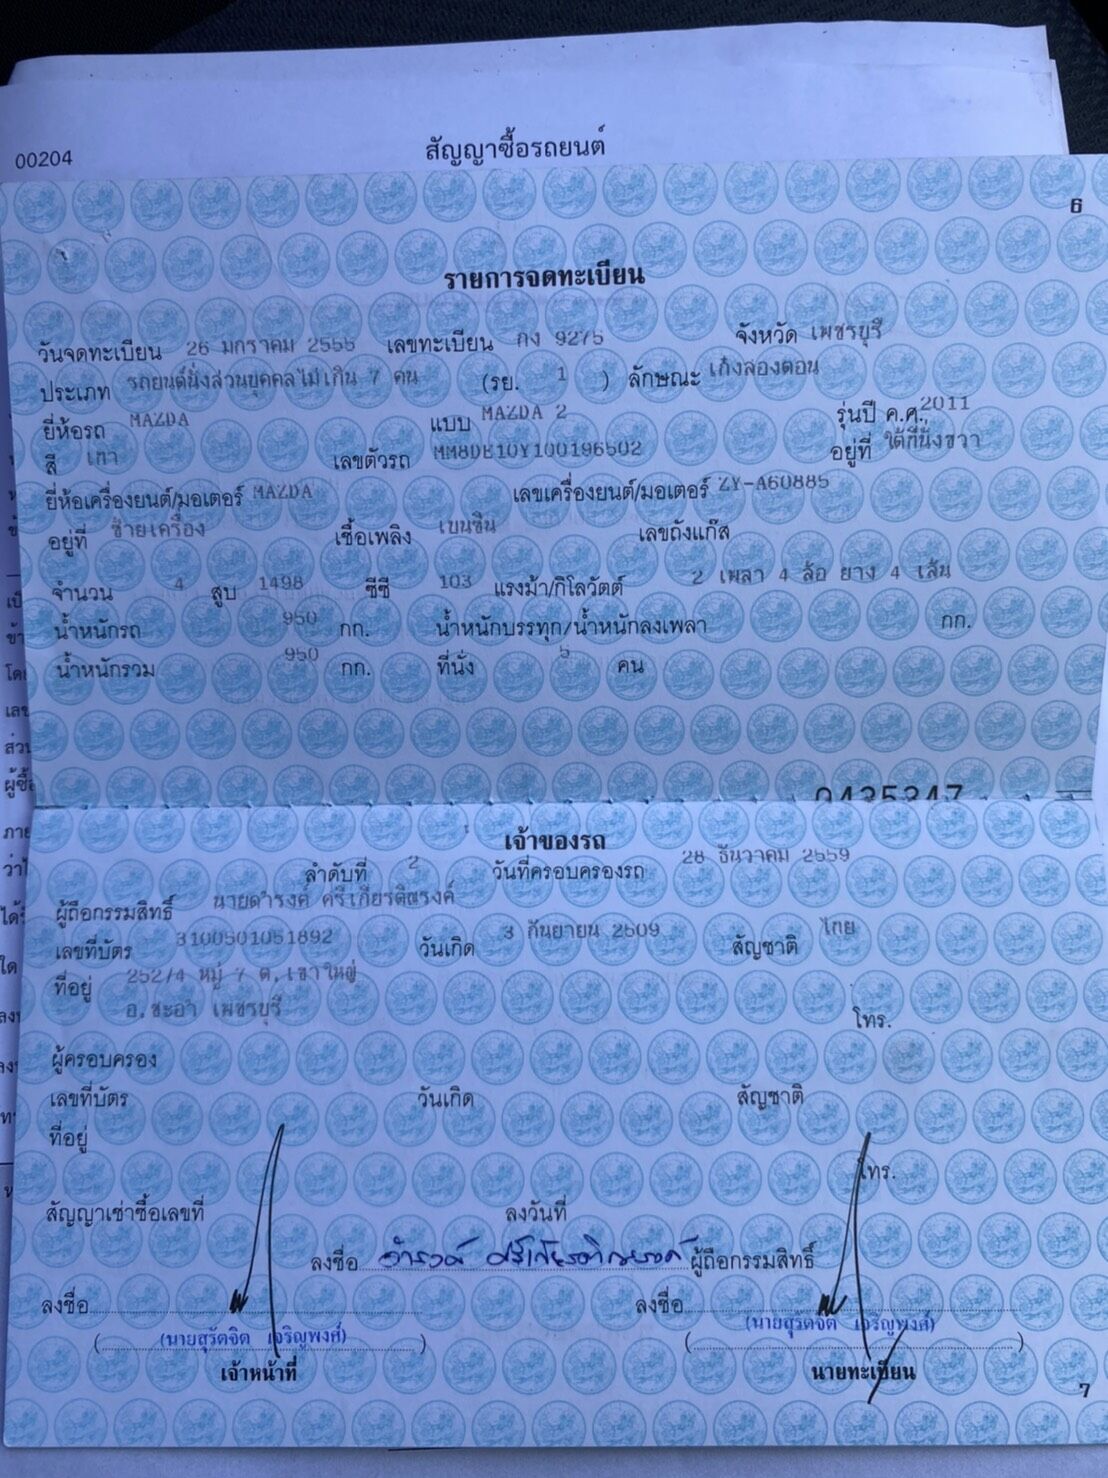 00204
สัญญาซื้อรถยนต์
6
รายการจดทะเบียน
วันจดทะเบียน 26 มกราคม 2555 เลขทะเบียน กง 9275 จังหวัด เพชรบุรี
ประเภท รถยนต์นั่งส่วนบุคคลไม่เกิน 7 คน (รย. 1 ) ลักษณะ เก๋งสองตอน
ยี่ห้อรถ MAZDA แบบ MAZDA 2 รุ่นปี ค.ศ. 2011
สี เทา เลขตัวรถ MM8DE10Y100196502 อยู่ที่ ใต้ที่นั่งขวา
ยี่ห้อเครื่องยนต์/มอเตอร์ MAZDA เลขเครื่องยนต์/มอเตอร์ ZY-A60885
อยู่ที่ ซ้ายเครื่อง เชื้อเพลิง เบนซิน เลขถังแก๊ส
จำนวน 4 สูบ 1498 ซีซี 103 แรงม้า/กิโลวัตต์ 2 เพลา 4 ล้อ ยาง 4 เส้น
น้ำหนักรถ 950 กก. น้ำหนักบรรทุก/น้ำหนักลงเพลา กก.
น้ำหนักรวม 950 กก. ที่นั่ง 5 คน
0435347
เจ้าของรถ
ลำดับที่ 2 วันที่ครอบครองรถ 28 ธันวาคม 2559
ผู้ถือกรรมสิทธิ์ นายดำรงค์ ศรีเกียรติณรงค์
เลขที่บัตร 3100501051892 วันเกิด 3 กันยายน 2509 สัญชาติ ไทย
ที่อยู่ 252/4 หมู่ 7 ต.เขาใหญ่
อ.ชะอำ เพชรบุรี
โทร.
ผู้ครอบครอง
เลขที่บัตร วันเกิด สัญชาติ
ที่อยู่
โทร.
สัญญาเช่าซื้อเลขที่ ลงวันที่
ลงชื่อ ดำรงค์ ศรีเกียรติณรงค์ ผู้ถือกรรมสิทธิ์
ลงชื่อ ลงชื่อ
(นายสุรัตจิต เจริญพงศ์) (นายสุรัตจิต เจริญพงศ์)
เจ้าหน้าที่ นายทะเบียน
7